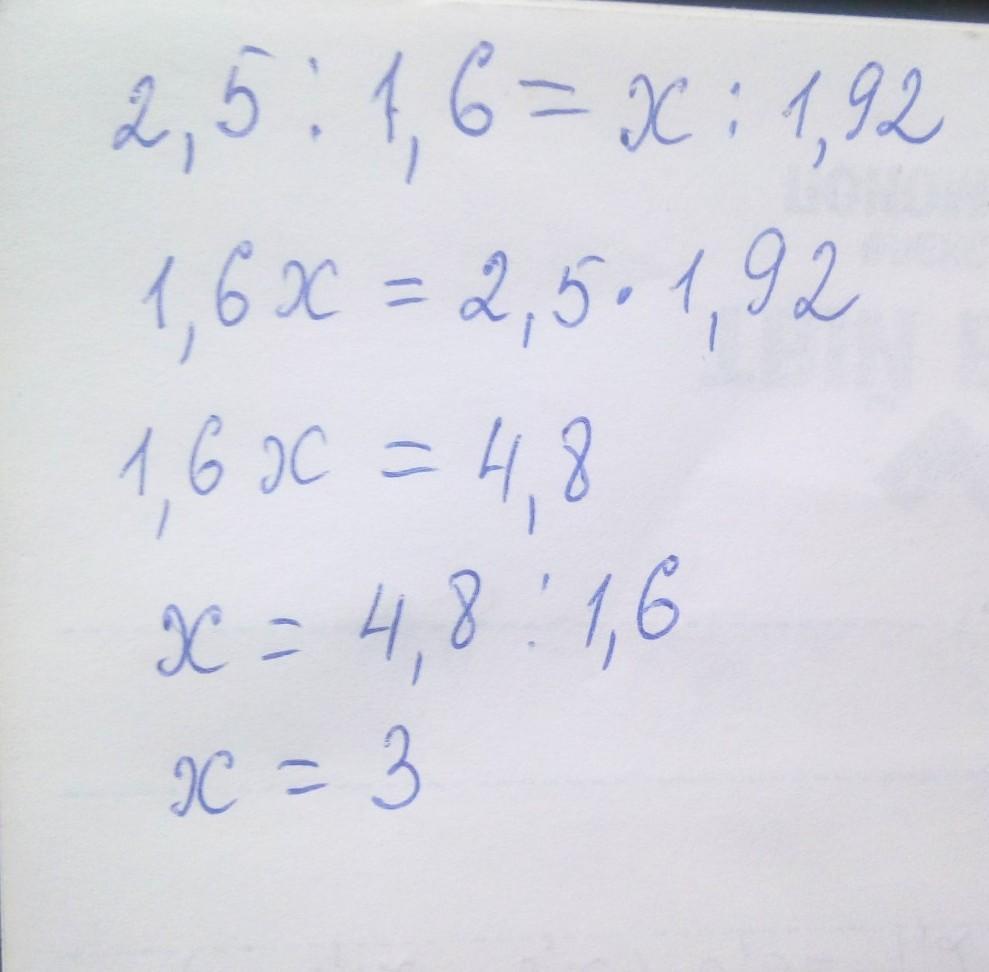 2,5 : 1,6 = x : 1,92
1,6x = 2,5 · 1,92
1,6x = 4,8
x = 4,8 : 1,6
x = 3